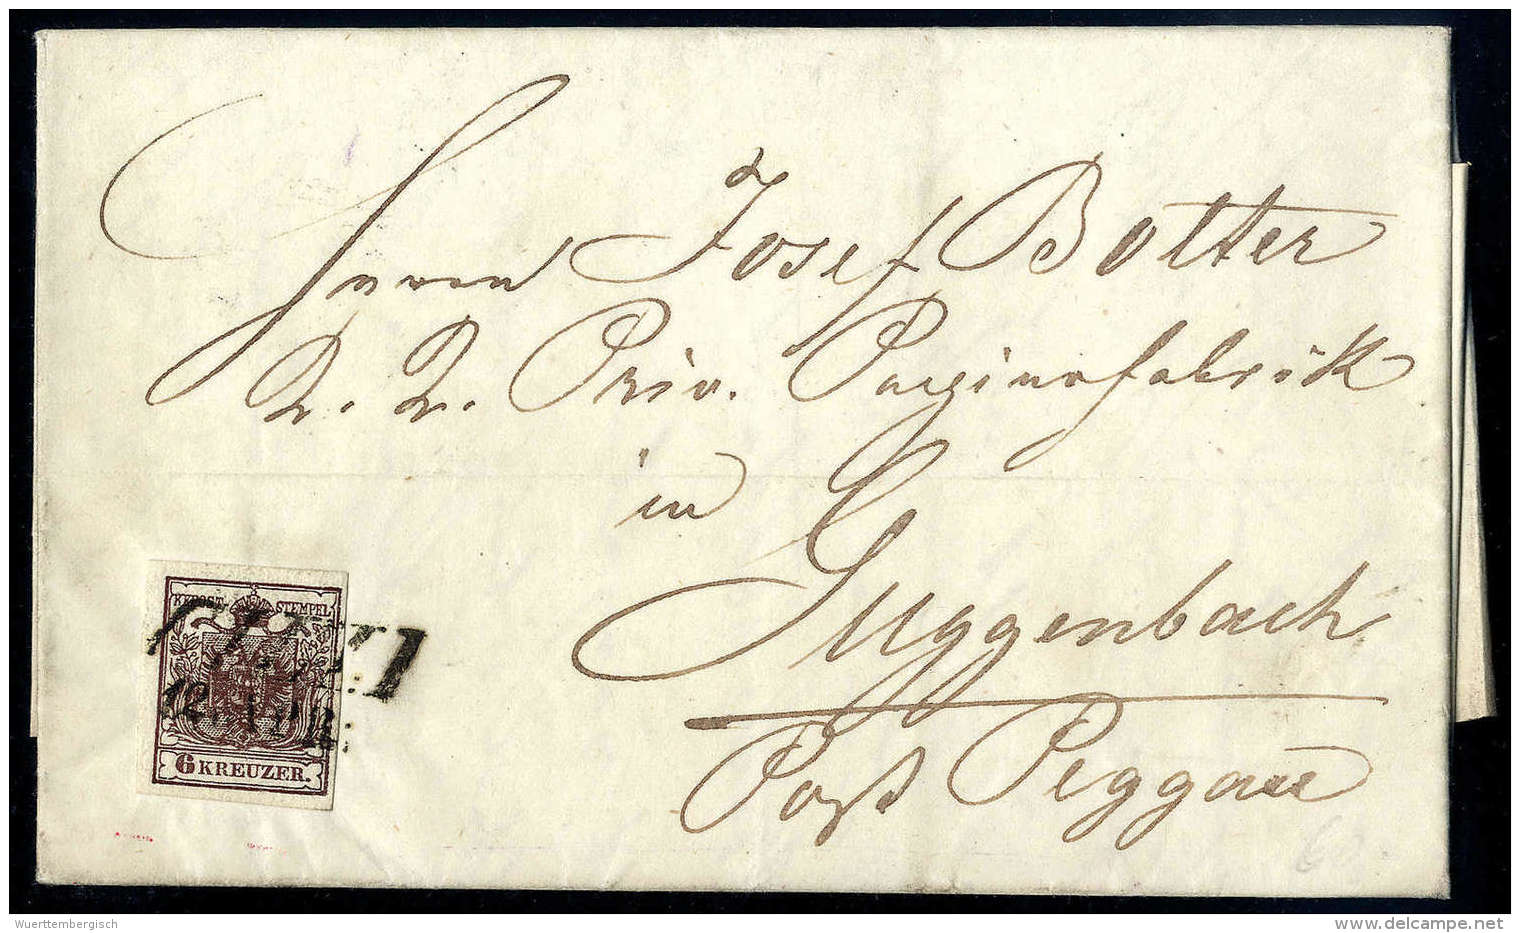 Herrn Josef Botter
K. K. Priv. Papierfabrik
in
Guggenbach
Post Peggau
KKPOST-STEMPEL
12. APR.
6 KREUZER.
Wuerttembergisch
www.delcampe.net